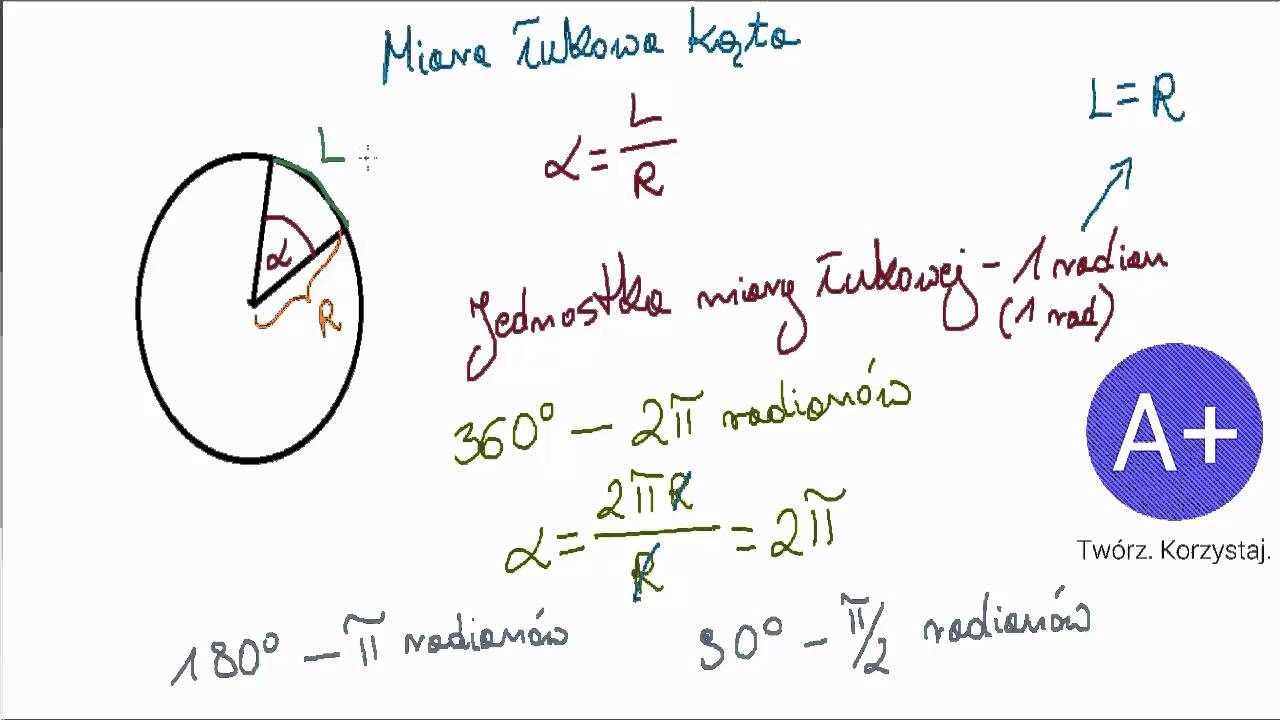 Miara łukowa kąta
L = R
α = L/R
L
α
R
Jednostka miary łukowej – 1 radian
(1 rad)
360° – 2π radianów
α = 2πR/R = 2π
A+
Twórz. Korzystaj.
180° – π radianów
90° – π/2 radianów